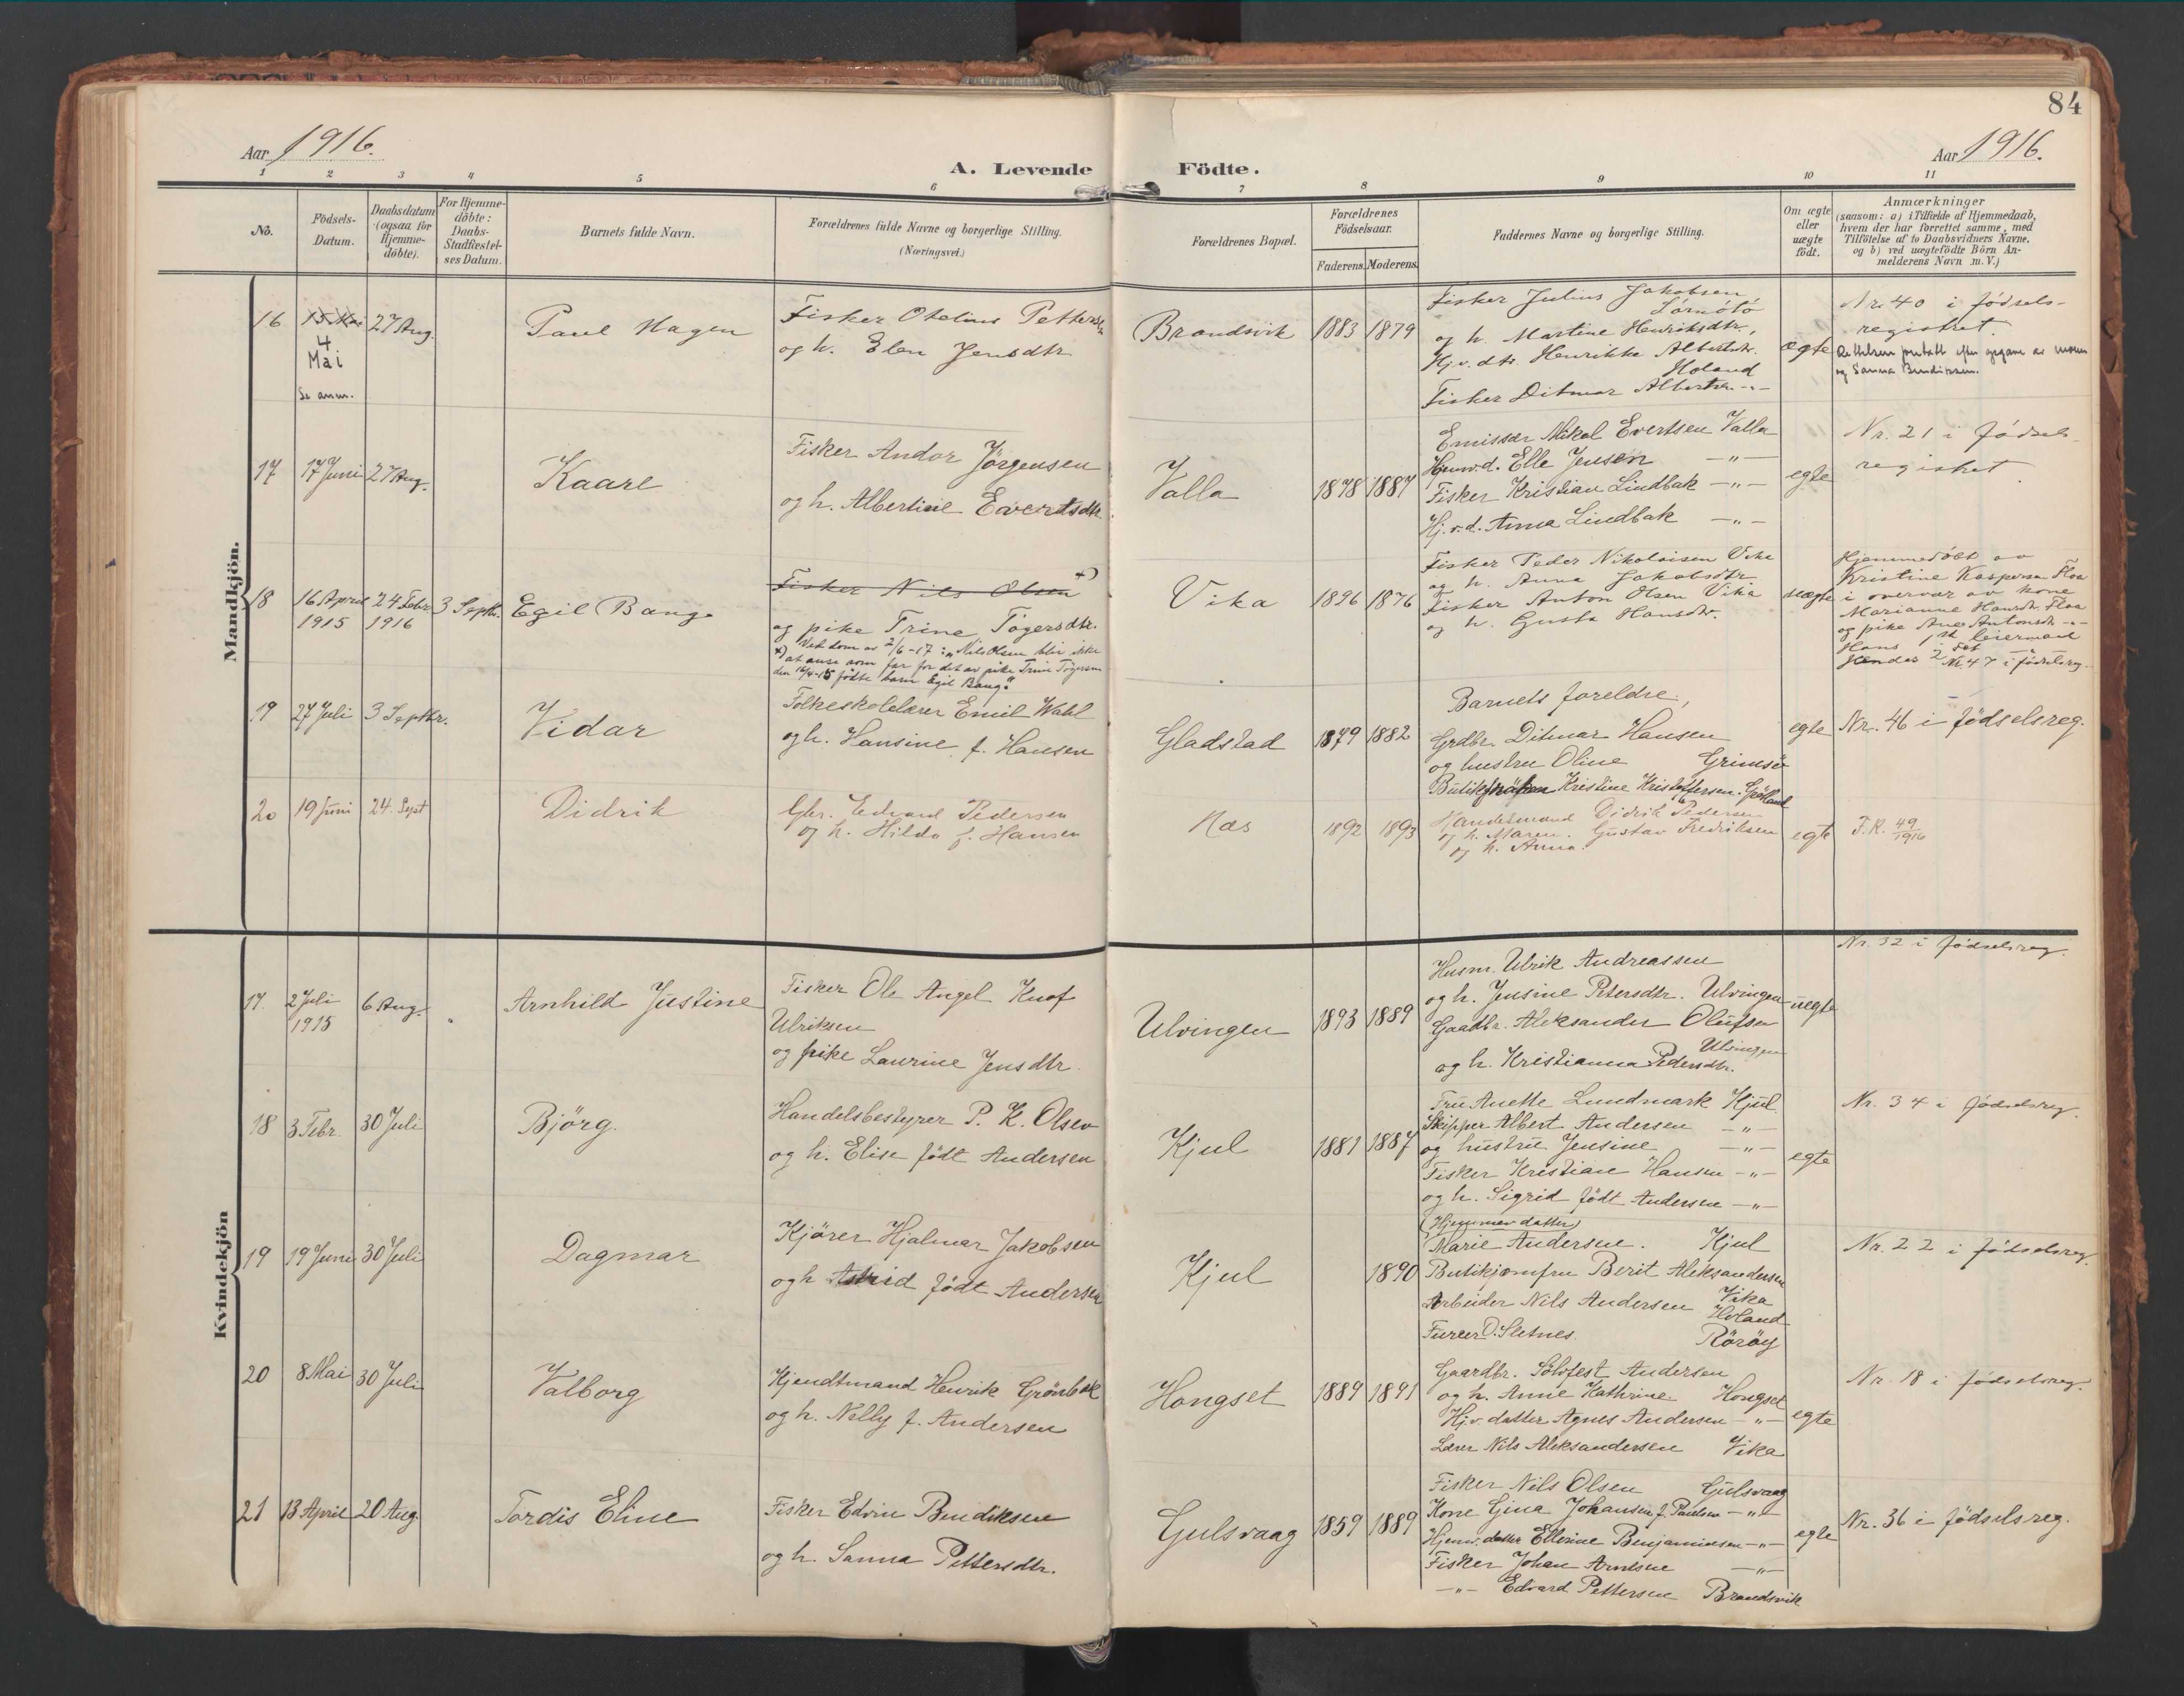 84
Aar 1916.
Aar 1916.
A. Levende Födte.
1 2 3 4 5 6 7 8 9 10 11
No.
Födsels-
Datum.
Daabsdatum
(ogsaa for
Hjemme-
döbte).
For Hjemme-
döbte:
Daabs-
Stadfæstel-
ses Datum.
Barnets fulde Navn.
Forældrenes fulde Navne og borgerlige Stilling.
(Næringsvei.)
Forældrenes Bopæl.
Forældrenes
Födselsaar.
Faderens. Moderens.
Faddernes Navne og borgerlige Stilling.
Om ægte
eller
uægte
födt.
Anmærkninger
(saasom: a) i Tilfælde af Hjemmedaab,
hvem der har forrettet samme, med
Tilföielse af to Daabsvidners Navne,
og b) ved uægtefödte Börn An-
melderens Navn m. V.)
Mandkjön.
16
15 Mai
4
Mai
Se anm.
27 Aug.
Paul Hagen
Fisker Otelius Pettersen
og h. Elen Jensdtr
Brandsvik
1883 1879
Fisker Julius Jakobsen
og h. Martine Henriksdtr.,
Hj.v.dtr Henrikke Albertsdtr.
Holand
Fisker Ditmar Albertsen -"-
ægte
Nr. 40 i fødsels-
registret.
17
17 Juni
27 Aug.
Kaare
Fisker Andor Jörgensen
og h. Albertine Evertsdtr.
Valla
1878 1887
Emissær Mikal Evertsen Valla
Hjemv.d. Elle Jensen -"-
Fisker Kristian Lindbak -"-
Hj.v.d. Anna Lindbak -"-
egte
Nr. 21 i fødsels-
registret.
18
16 April
1915
24 Febr.
1916
3 Septbr.
Egil Bang
Fisker Nils Olsen x)
og pike Trine Tögersdtr.
x) Ved dom av 2/6-17: "Nils Olsen blir ikke
at anse som far for det av pike Trine Tögersen
den 16/4-15 fødte barn Egil Bang."
Vika
1896 1876
Fisker Peder Nikolaisen Vika
og h. Anna Jakobsdtr.
Fisker Anton Olsen Vika
og h. Gusta Hansdtr.
uægte
Hjemmedöbt av
Kristine Kaspersen Floa
i overvær av kone
Marianne Hansdtr. Floa
og pike Anes Antonsdtr -"-
Hans 1st leiermaal
Hendes 2det -"-
Nr. 47 i fødselsreg.
19
27 Juli
3 Septbr.
Vidar
Folkeskolelærer Emil Wahl
og h. Hansine f. Hansen
Gladstad
1879 1882
Barnets foreldre,
Grdbr. Ditmar Hansen
og hustru Oline Grimsö
Butikfröken Kristine Kristoffersen.
egte
Nr. 46 i fødselsreg.
20
19 Juni
24. Sept
Didrik
Gbr. Edvard Pedersen
og h. Hilda f. Hansen
Næs
1892 1893
Handelsmand Didrik Pedersen
og h. Maren. Gustav Fredriksen
og h. Anna.
egte
F.R. 49/1916
Kvindekjön
17.
2 Juli
1915
6 Aug.
Arnhild Justine
Fisker Ole Angel Knof
Ulriksen
og pike Laurine Jensdtr.
Ulvingen
1893 1889
Husm. Ulrik Andreassen
og h. Jensine Petersdtr. Ulvingen
Gaardbr. Aleksander Olufsen
Ulvingen
og h. Kristianna Pedersdtr.
uegte
Nr. 32 i fødselsreg.
18
3 Febr.
30 Juli
Björg.
Handelsbestyrer P. K. Olsen
og h. Elise født Andersen
Kjul
1881 1887
Fru Anette Lundmark Kjul.
Skipper Albert Andersen -"-
og hustru Jensine -"-
Fisker Kristian Hansen -"-
og h. Sigrid født Andersen -"-
egte
Nr. 34 i fødselsreg.
19
19 Juni
30 Juli
Dagmar
Kjörer Hjalmar Jakobsen
og h Astrid født Andersen
Kjul
1890
(Hjemmev datter)
Marie Andersen. Kjul
Butikjomfru Berit Aleksandersen
Vika
Arbeider Nils Andersen Holand
Furer O. Sletnes. Röröy
Nr. 22 i fødselsreg.
20
8 Mai
30 Juli
Valborg
Kjendtmand Henrik Grönbæk
og h. Nelly f. Andersen
Hongset
1889 1891
Gaardbr. Sölvfest Andersen
og h. Anne Kathrine Hongset
Hj.v. datter Agnes Andersen -"-
Lærer Nils Aleksandersen Vika
egte
Nr. 18 i fødselsreg.
21
13 April
20 Aug.
Tordis Eline
Fisker Edvin Bendiksen
og h. Sanna Pettersdtr.
Gulsvaag
1859 1889
Fisker Nils Olsen Gulsvaag
Kone Gina Johansen f. Paulsen -"-
Hjemv. datter Ellerine Benjaminsen -"-
Fisker Johan Arntsen -"-
-"- Edvard Pettersen Brandsvik
egte
Nr. 36 i fødselsreg.